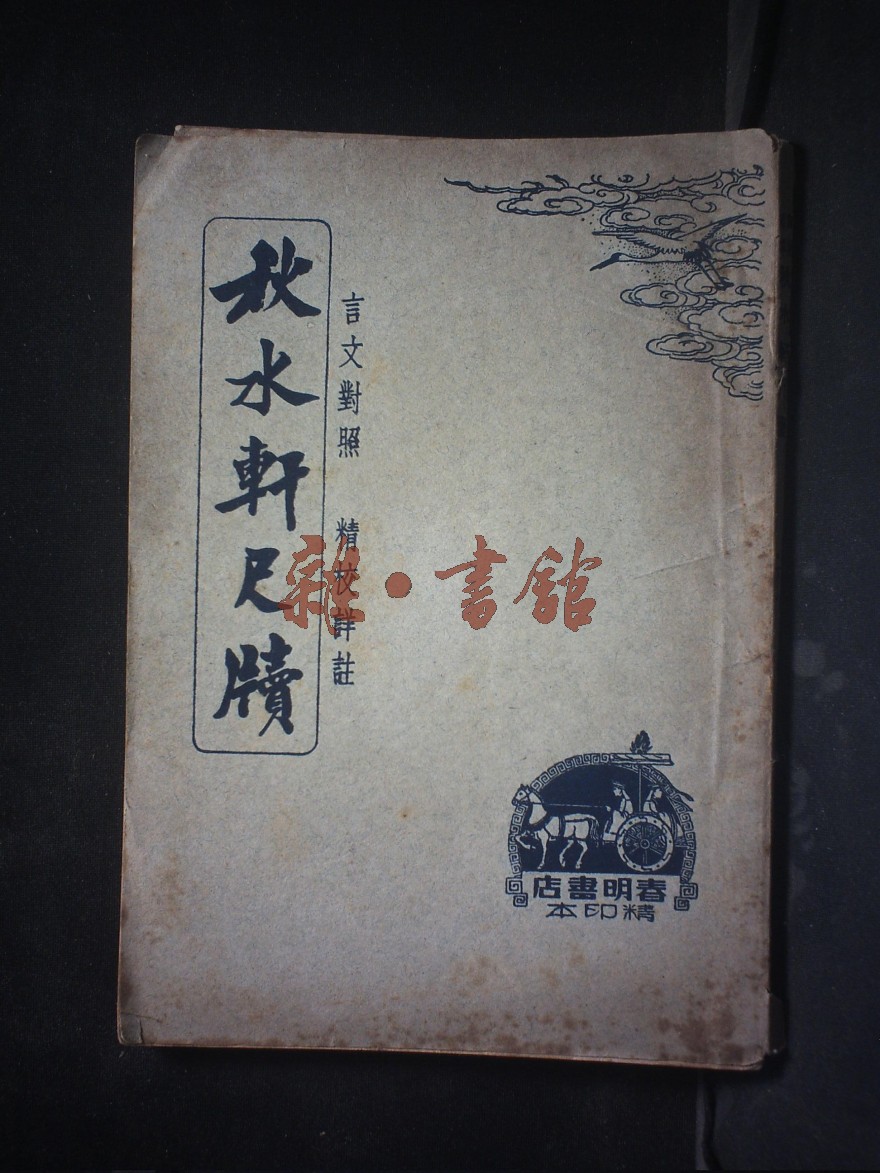 秋水軒尺牘
言文對照 精校詳註
雜·書館
春明書店
精印本